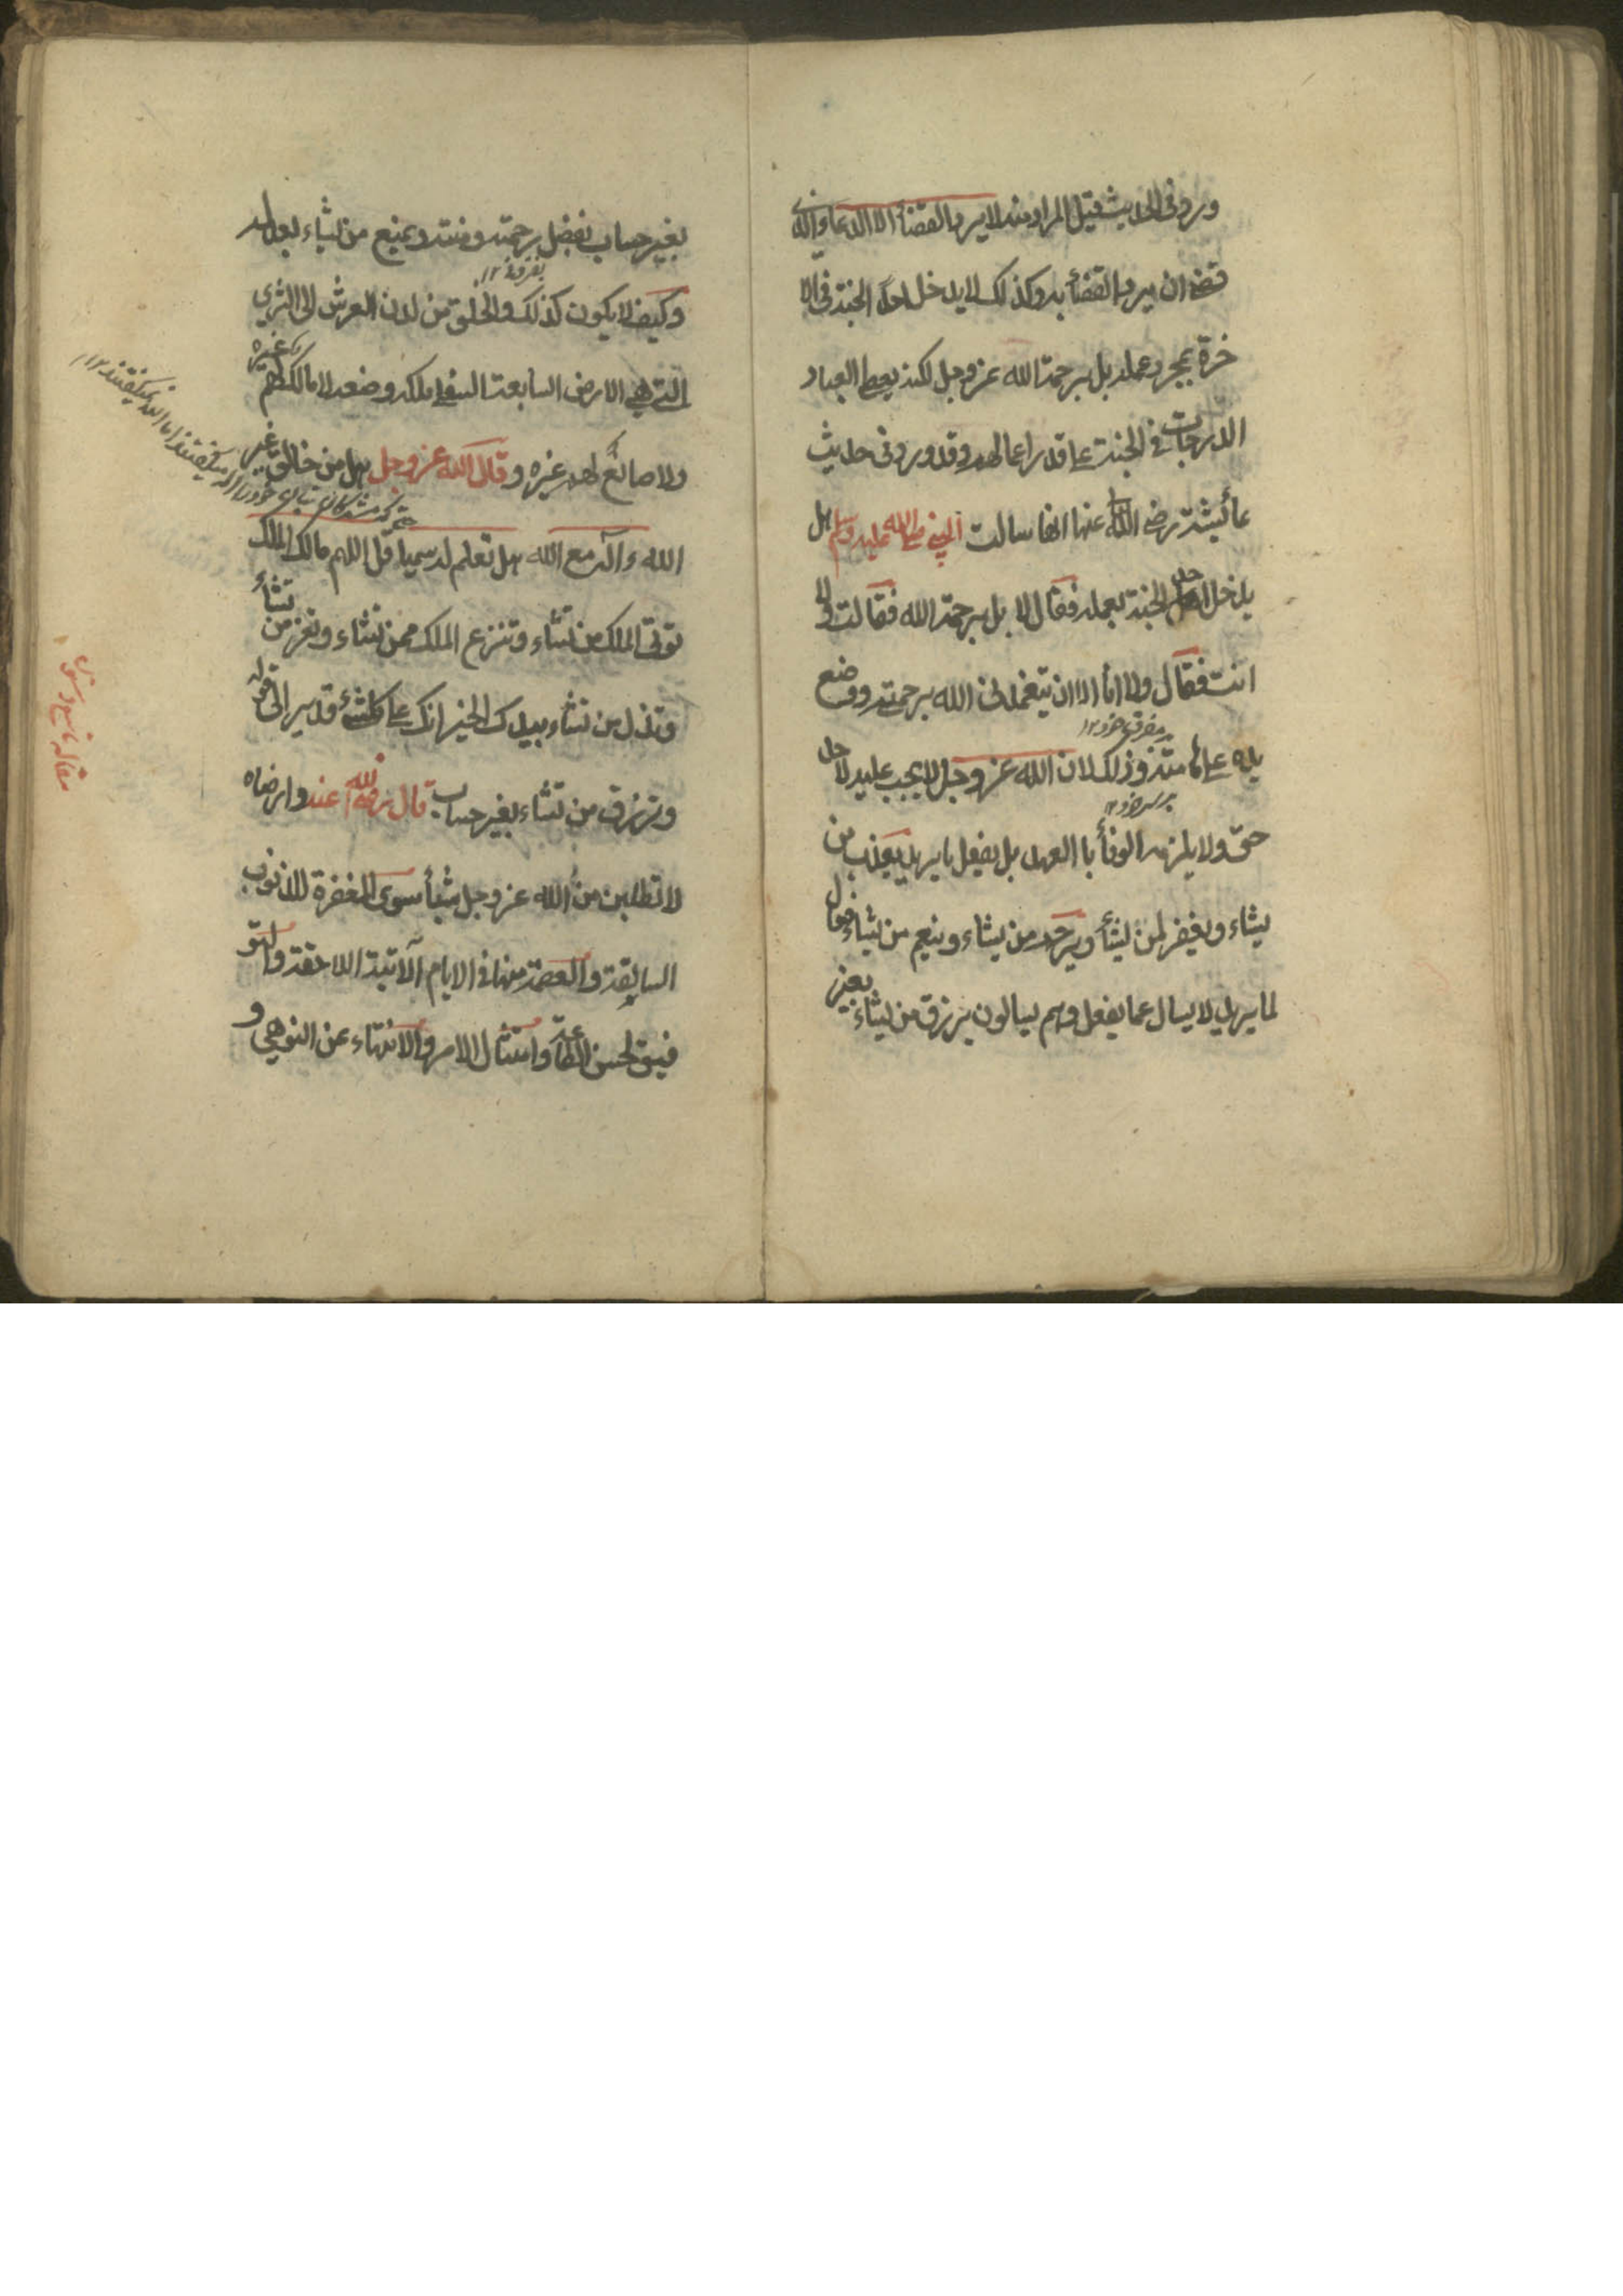 ورد في الحديث فقيل المراد منه لا يرد القضأ الا الدعا الذي
قضى ان يرد القضأ به وكذلك لا يدخل احد الجنة في الا
خرة بمجرد عمله بل برحمة الله عز وجل لكنه يعطى العباد
الدرجات في الجنة على قدر اعمالهم وقد ورد في حديث
عائيشة رضى الله عنها انها سالت النبي صلى الله عليه وسلم هل
يدخل احد الجنة بعمله فقال لا بل برحمة الله فقالت ولا
انت فقال ولا انا الا ان يتغمدني الله برحمته ووضع
يده على هامته وذلك لان الله عز وجل لا يجب عليه لاحد
حق ولا يلزمه الوفأ با العهد بل يفعل ما يريد يعذب من
يشاء ويغفر لمن يشأ ويرحم من يشاء وينعم من يشاء فعال
لما يريد لا يسال عما يفعل وهم يسالون يرزق من يشاء بغير
بغير حساب بفضل رحمته ومنته ويمنع من يشاء بعدله
وكيف لا يكون كذلك والخلق من لدن العرش الى الثرى
التي هي الارض السابعة السفلى ملكه وصنعه لا مالك لهم غيره
ولا صانع لهم غيره وقال الله عز وجل هل من خالق غير
الله ءاله مع الله هل تعلم له سميا قل اللهم مالك الملك
توتي الملك من تشاء وتنزع الملك ممن تشاء وتعز من تشأ
وتذل من تشاء بيدك الخير انك على كل شئ قدير الى قوله
وترزق من تشاء بغير حساب قال رضى الله عنه وارضاه
لا تطلبن من الله عز وجل شيأ سوى المغفرة للذنوب
السابقة والعصمة منها في الايام الآتية اللاحقة والتو
فيق لحسن الطاعة وامتثال الامر والانتهاء عن النوهي و